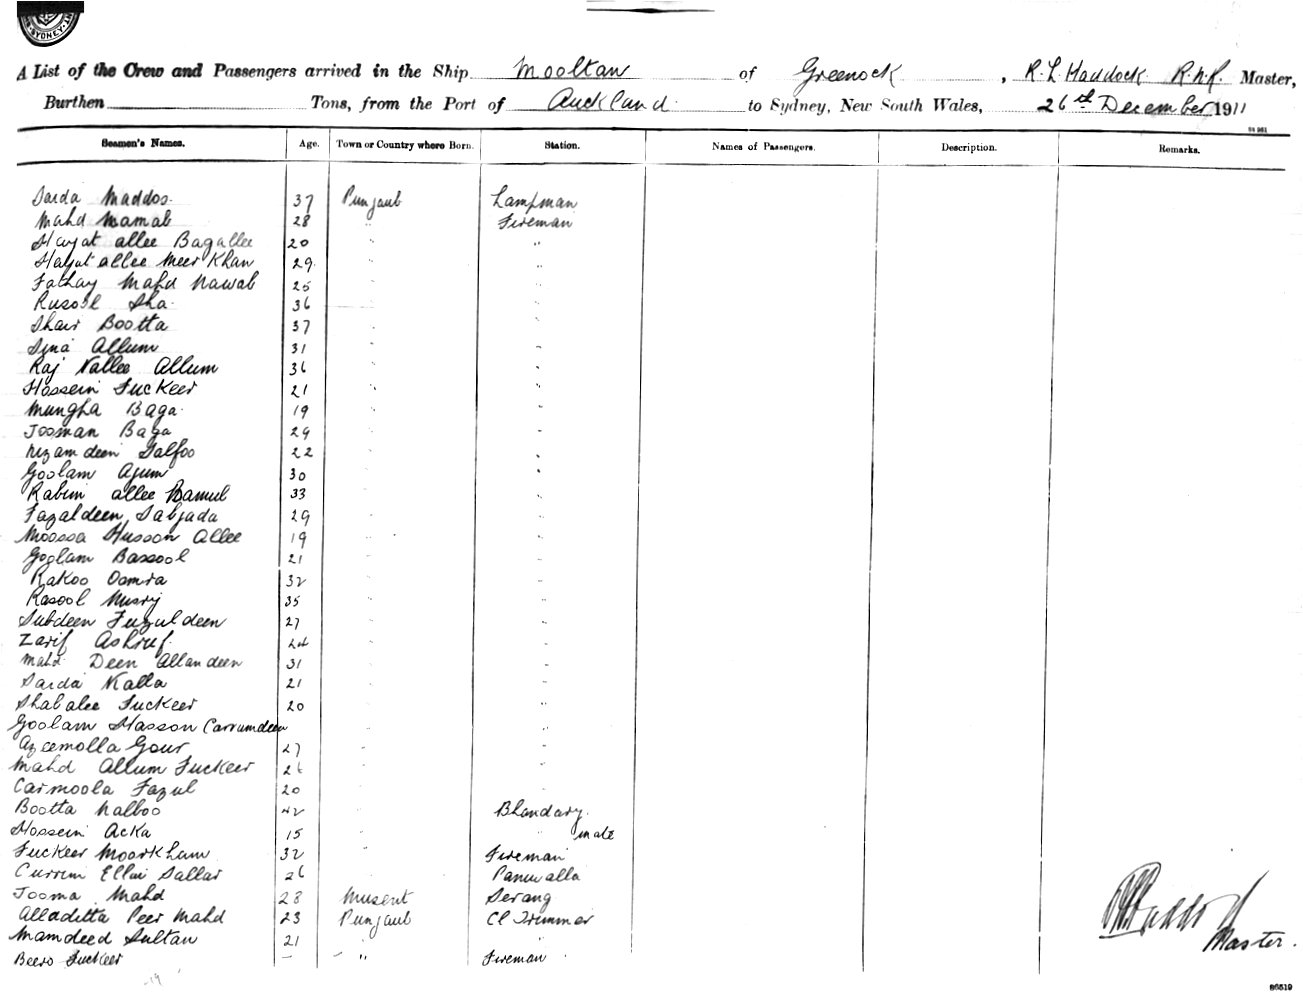 SYDNEY
A List of the Crew and Passengers arrived in the Ship Mooltan of Greenock, R. L. Haddock R.N.R. Master,
Burthen Tons, from the Port of Auckland to Sydney, New South Wales, 26th December 1911
Seamen's Names. Age. Town or Country where Born. Station. Names of Passengers. Description. Remarks.
Saida Maddos. 37 Punjaub Lampman
Mahd Mamab 28 " Fireman
Hayat allee Bagallee 20 " "
Hayat allee Meer Khan 29 " "
Fathay Mahd Nawab 25 " "
Rusool Sha 36 " "
Shair Bootta 37 " "
Sina Allum 31 " "
Raj Vallee Allum 36 " "
Hossein Fuckeer 21 " "
Mungha Baga 19 " "
Jooman Baga 29 " "
Nizamdeen Galfoo 22 " "
Goolam Ajum 30 " "
Rabim allee Bamul 33 " "
Fazaldeen Sabjada 29 " "
Moossa Husson Allee 19 " "
Goolam Bassool 21 " "
Rakoo Oomra 32 " "
Rasool Musry 35 " "
Subdeen Fuzuldeen 27 " "
Zarif Ashruf 24 " "
Mahd Deen Allandeen 31 " "
Saida Kalla 21 " "
Shabalee Fuckeer 20 " "
Goolam Hasson Carrumdeen " "
Azeemolla Gour 27 " "
Mahd Allum Fuckeer 26 " "
Carmoola Fazul 20 " "
Bootta Nalboo 42 " Bhandary
Hossein Acka 15 " " mate
Fuckeer Moorkham 32 " Fireman
Currim Ellai Sallar 26 " Paniwalla
Jooma Mahd 28 Musent Serang
Alladitta Peer Mahd 23 Punjaub Cl Trimmer
Mamdeed Sultan 21 " "
Beero Fuckeer — — " Fireman
Master.
86519